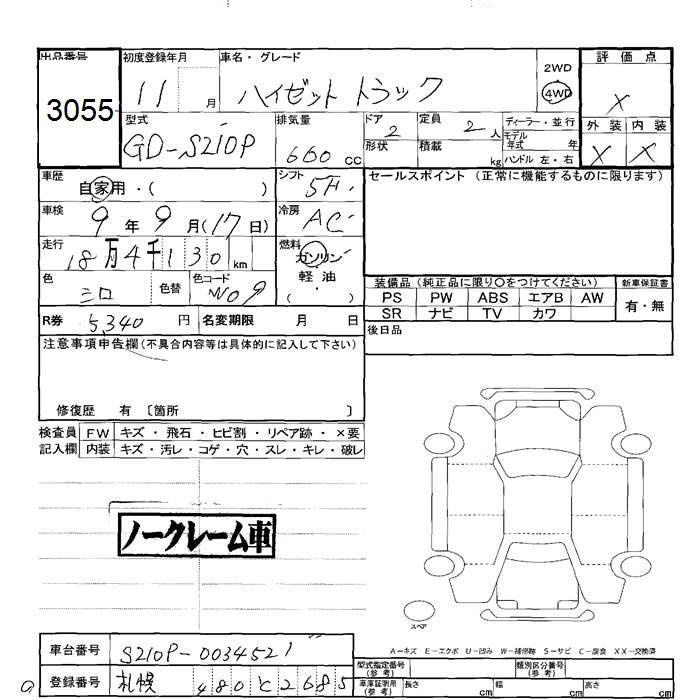 出品番号
3055
初度登録年月
11 月
車名・グレード
ハイゼット トラック
2WD
4WD
評価点
X
外装 内装
X X
型式
GD-S210P
排気量
660 cc
ドア 2
形状
定員 2 人
積載 kg
ディーラー・並行
モデル年式 年
ハンドル 左・右
車歴
自家用・( )
シフト
5F
セールスポイント (正常に機能するものに限ります)
車検
9 年 9 月 (17 日)
冷房
AC
走行
18万4千130 km
燃料
ガソリン
軽油
・
色
シロ
色替
色コード
W09
装備品 (純正品に限り○をつけてください)
PS PW ABS エアB AW
SR ナビ TV カワ
新車保証書
有・無
R券 5,340 円
名変期限 月 日
後日品
注意事項申告欄 (不具合内容等は具体的に記入して下さい)
修復歴 有 〔箇所 〕
検査員記入欄
FW キズ・飛石・ヒビ割・リペア跡・×要
内装 キズ・汚レ・コゲ・穴・スレ・キレ・破レ
ノークレーム車
スペア
A－キズ E－エクボ U－凹み W－補修跡 S－サビ C－腐食 XX－交換済
車台番号 S210P-0034521
登録番号 札幌 480 と 2685
型式指定番号(参考)
類別区分番号(参考)
車庫証明用(参考) 長さ cm 幅 cm 高さ cm